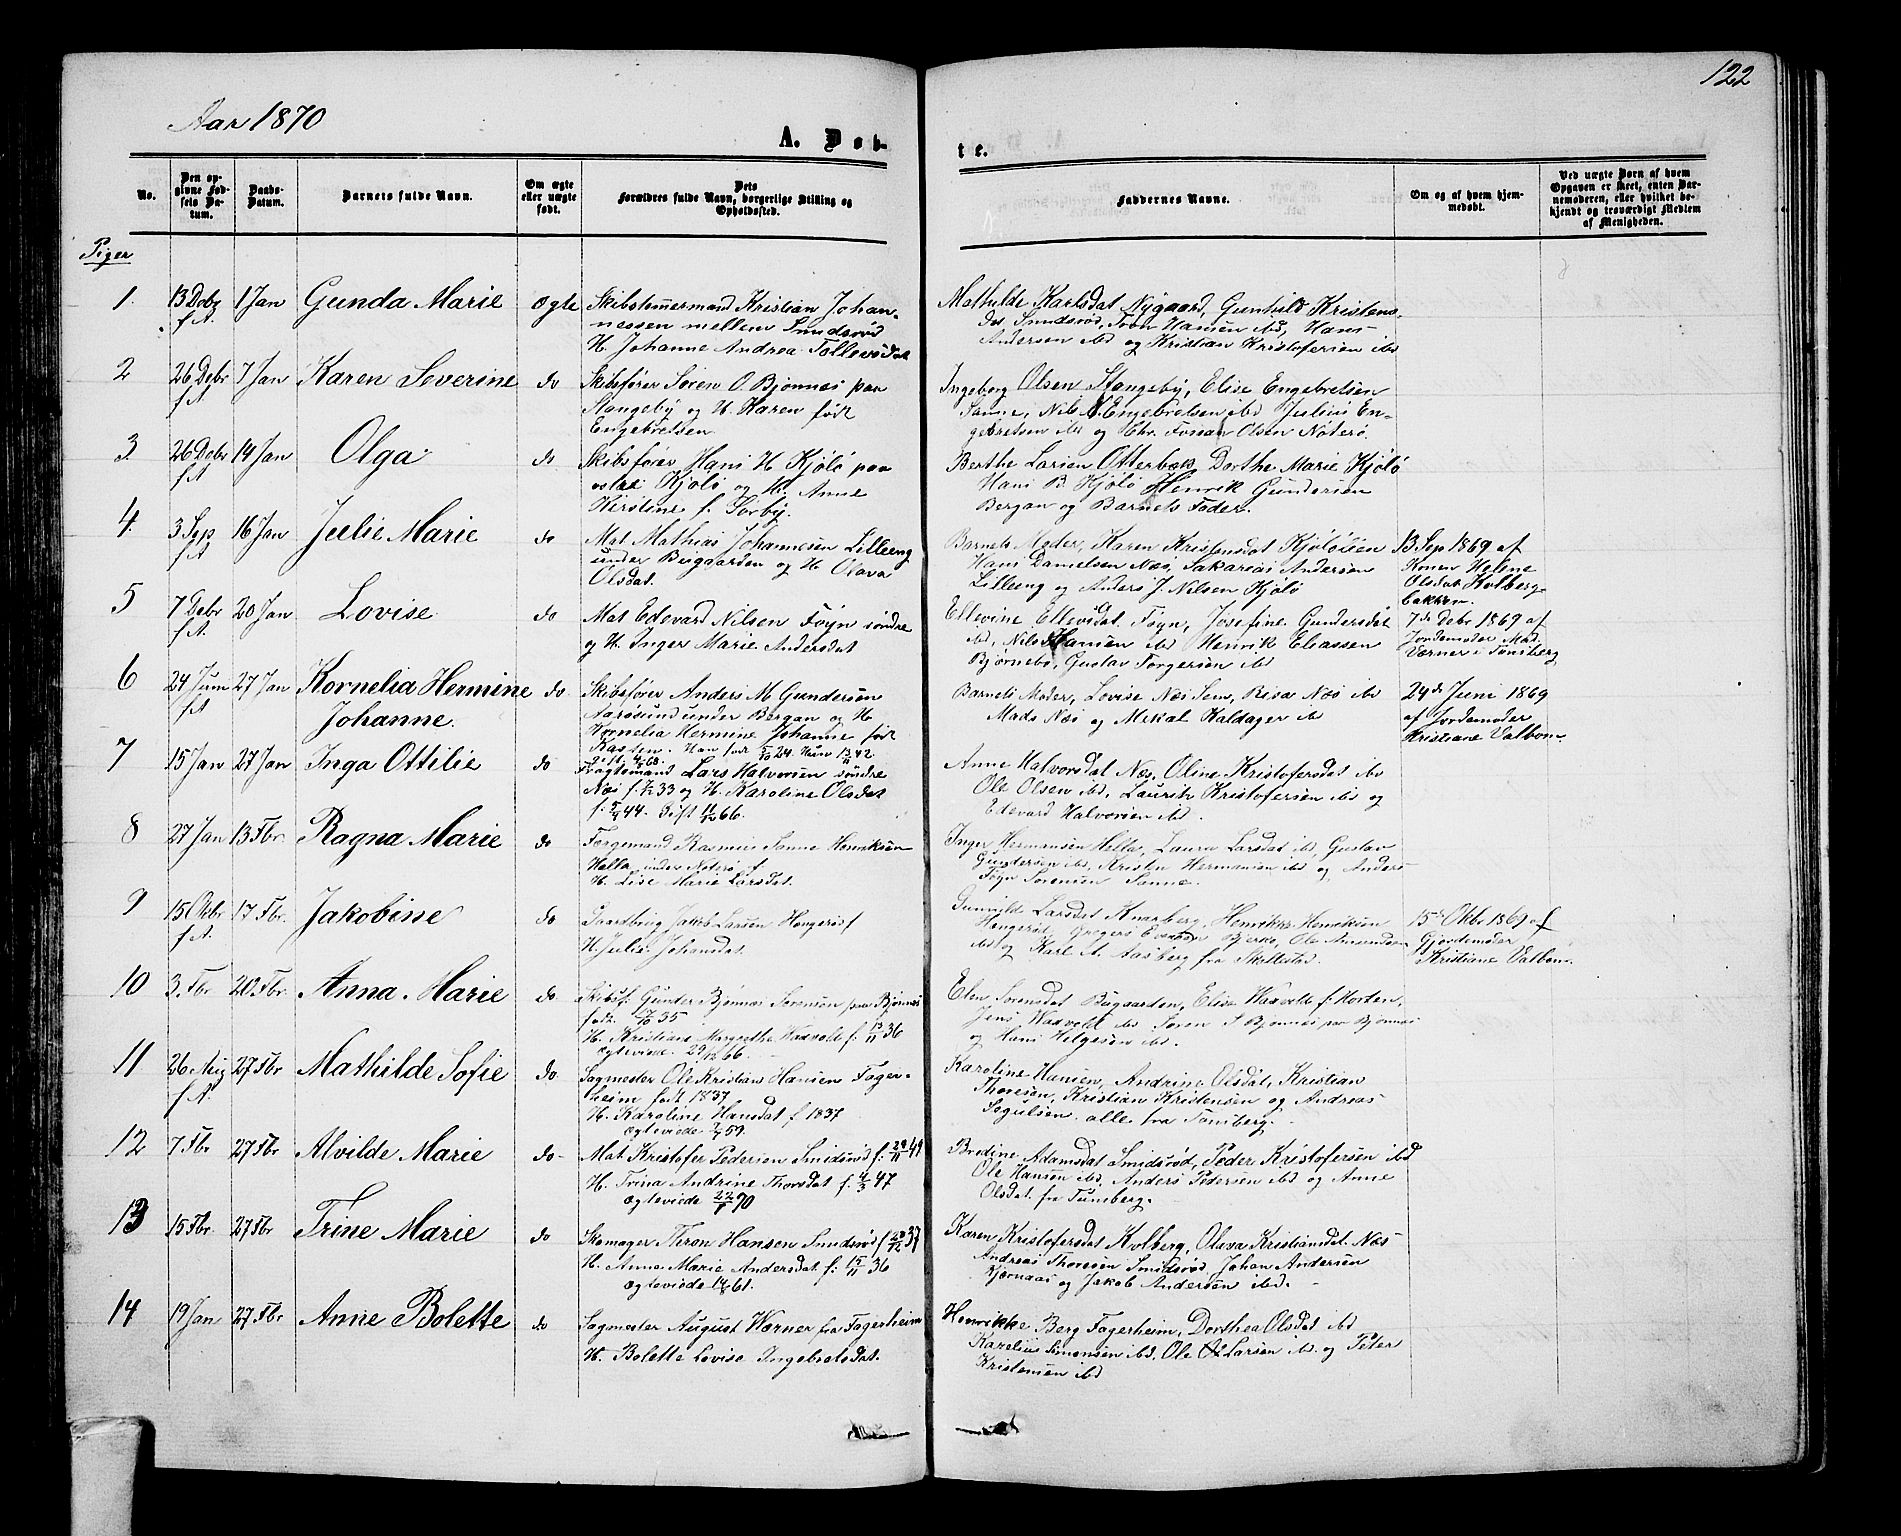 122
Aar 1870
A. Døb-
te.
No.
Den op-
givne Fød-
sels Da-
tum.
Daabs-
Datum.
Barnets fulde Navn.
Om ægte
eller uægte
født.
Dets
Forældres fulde Navn, borgerlige Stilling og
Opholdssted.
Faddernes Navne.
Om og af hvem hjem-
medøbt.
Ved uægte Børn af hvem
Opgaven er skeet, enten Bar-
nemoderen, eller hvilket be-
kjendt og troværdigt Medlem
af Menigheden.
Piger
1. 13 Debr 1 Jan Gunda Marie Ægte Skibstømermand Kristian Johan-
f A. nessen mellem Smidsrød
H. Johanne Andrea Tollevsdat
Mathilde Karlsdat Nygaard, Gunhild Kristens-
dat Smidsrød, Hansen ibd, Hans
Andersen ibd og Kristian Kristofersen ibd
2 26 Debr 7 Jan Karen Severine do Skibsfører Søren O Bjønnes paa
f A Stangeby og H. Karen født
Engebretsen
Ingeborg Olsen Stangeby, Elise Engebretsen
Sanne, Nils Engebretsen ibd Julius En-
gebretsen ibd og Chr. Olsen Nøterø.
3. 26 Debr 14 Jan Olga do Skibsfører Hans H Kjølø paa
f A Kjølø og H. Anne
Kirstine f. Sørby.
Berthe Larsen Otterbæk, Dorthe Marie Kjølø
Hans B. Kjølø Henrik Gundersen
Bergan og Barnets Fader.
4. 3 Sep 16 Jan Julie Marie do Mat Mathias Johannesen Lilleeng
f A under Bugaarden og H. Olava
Olsdat.
Barnets Moder, Karen Kristensdat Kjøløien
Hans Danielsen Næs, Sakarias Andersen
Lilleeng og Anders J. Nilsen Kjølø
13 Sep 1869 af
Konen Helene
Olsdat Kolberg-
bakken
5 7 Debr 20 Jan Lovise do Mat Edevard Nilsen Føyn søndre
f A. og H. Inger Marie Andersdat
Ellevine Ellevsdat Føyn, Josefine Gundersdat
ibd, Nils Hansen ibd Henrik Eliassen
Bjørnebo, Gustav Torgersen ibd
7de Debr 1869 af
Jordemoder Mad.
Værner i Tønsberg
6 24 Juni 27 Jan Kornelia Hermine do Skibsfører Anders M Gundersen
f A Johanne. Aarøsund under Bergan og H
Kornelia Hermine Johanne født
Kasten. Han født 5/10 24. Hun 13/11 42
Barnets Moder, Lovise Næs Sem, Risa Næs ibd
Mads Næs og Mikal Haldager ibd
24de Juni 1869
af Jordemoder
Kristiane Valbom
7 15 Jan 27 Jan Inga Ottilie do Fragtemand Lars Halvorsen søndre
Næs f. 7/12 33 og H. Karoline Olsdat
f. 5/4 44. Gift 11/12 66.
Anne Halvorsdat Næs, Oline Kristofersdat ibd
Ole Olsen ibd, Lauritz Kristofersen ibd og
Edevard Halvorsen ibd.
8 27 Jan 13 Fbr. Ragna Marie do Færgemand Rasmus Sanne Henriksen
Hella under Nøterø f.
H. Lise Marie Larsdat.
Inger Hermansen Hella, Laura Larsdat ibd, Gustav
Gundersen ibd, Kristen Hermansen ibd og Anders
Føyn Sørensen Sanne.
9 15 Okbr 17 Fbr. Jakobine do Gaardbrug Jakob Larsen Hengerød f
f A. H. Julie Johansdat.
Gunnilde Larsdat Knarberg, Henrikke Henriksen
Hengerød, Gregers Bjerke, Ole Amundsen
ibd og Karl A. Aasberg fra Skallestad.
15de Okbr 1869 af
Gjordemoder
Kristiane Valbom
10 3. Fbr 20. Fbr. Anna Marie do Skibsf. Gunder Bjønnes Sørensen paa Bjønnes
født 17/10 35
H. Kristiane Margrethe Waavold f. 13/11 36
Ægteviede 29/12 66.
Elen Sørensdat Bugaarden, Elise Waavold f: Horten,
Jens Waavold ibd Søren S Bjønnes paa Bjønnes
og Hans Helgesen ibd.
11 26 Aug 27 Fbr Mathilde Sofie do Sagmester Ole Kristian Hansen Fager-
f A. heim født 1837
H. Karoline Hansdat f 1837
Ægteviede 59.
Karoline Hansen, Andrine Olsdat, Kristian
Thoresen, Kristian Kristensen og Andreas
Segulsen alle fra Tønsberg.
12 7 Fbr 27 Fbr. Alvilde Marie do Mat Kristofer Pedersen Smidsrød f. 29/11 49
H. Trina Andrine Thorsdat f. 4/3 47
Ægteviede 22/1 70
Bredine Adamsdat Smidsrød, Peder Kristofersen ibd
Ole Hansen ibd, Anders Pedersen ibd og Anne
Olsdat fra Tønsberg.
13 15 Fbr. 27 Fbr Trine Marie do Skomager Thron Hansen Smidsrød f 29/12 37
H. Anne Marie Andersdat f: 15/11 36
Ægteviede 61.
Karen Kristofersdat Kolberg, Olava Kristiansdat. Næs
Andreas Thoresen Smidsrød, Johan Andersen
Bjørnaas og Jakob Andersen ibd.
14 19 Jan 27 Fbr Anne Bolette do Sagmester August Wærner fra Fagerheim
H. Bolette Lovise Ingebretsdat.
Henrikke Berg Fagerheim, Dorthea Olsdat ibd
Karelius Simonsen ibd. Ole Larsen ibd. og Peter
Kristensen ibd